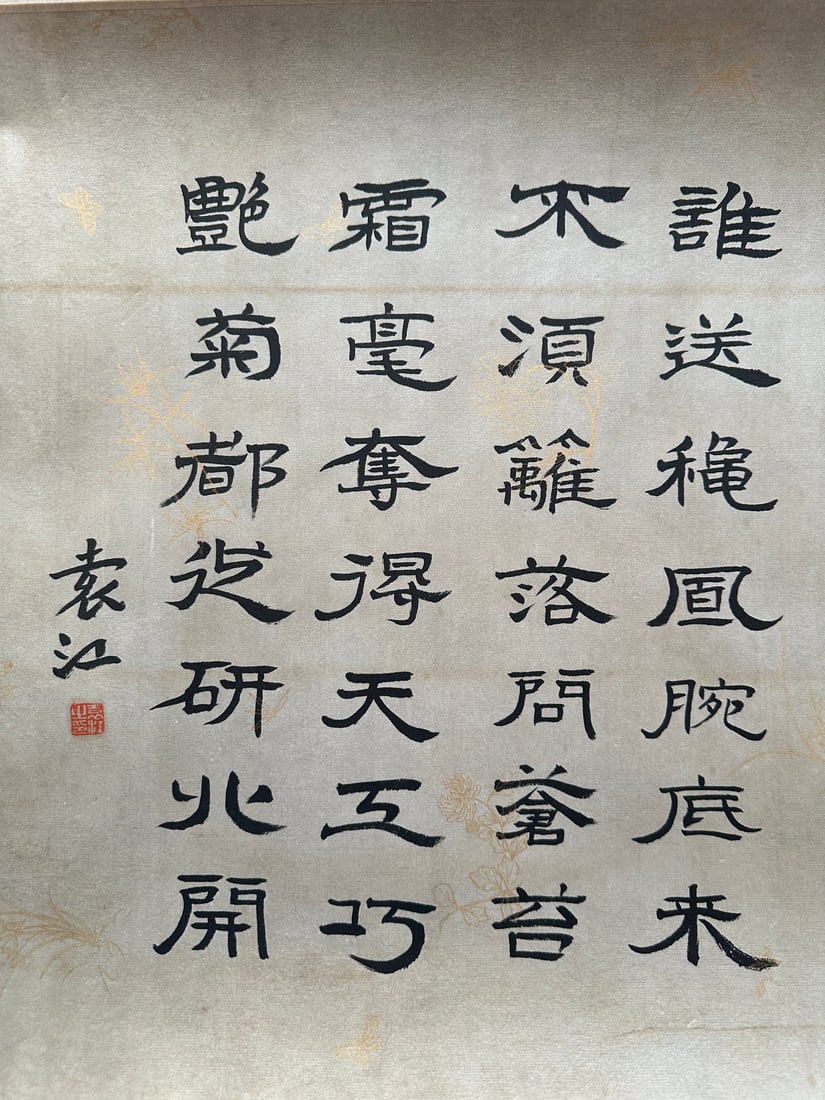 誰送穐風腕底来
不須籬落問蒼苔
霜毫奪得天工巧
艷菊都從研北開
袁江